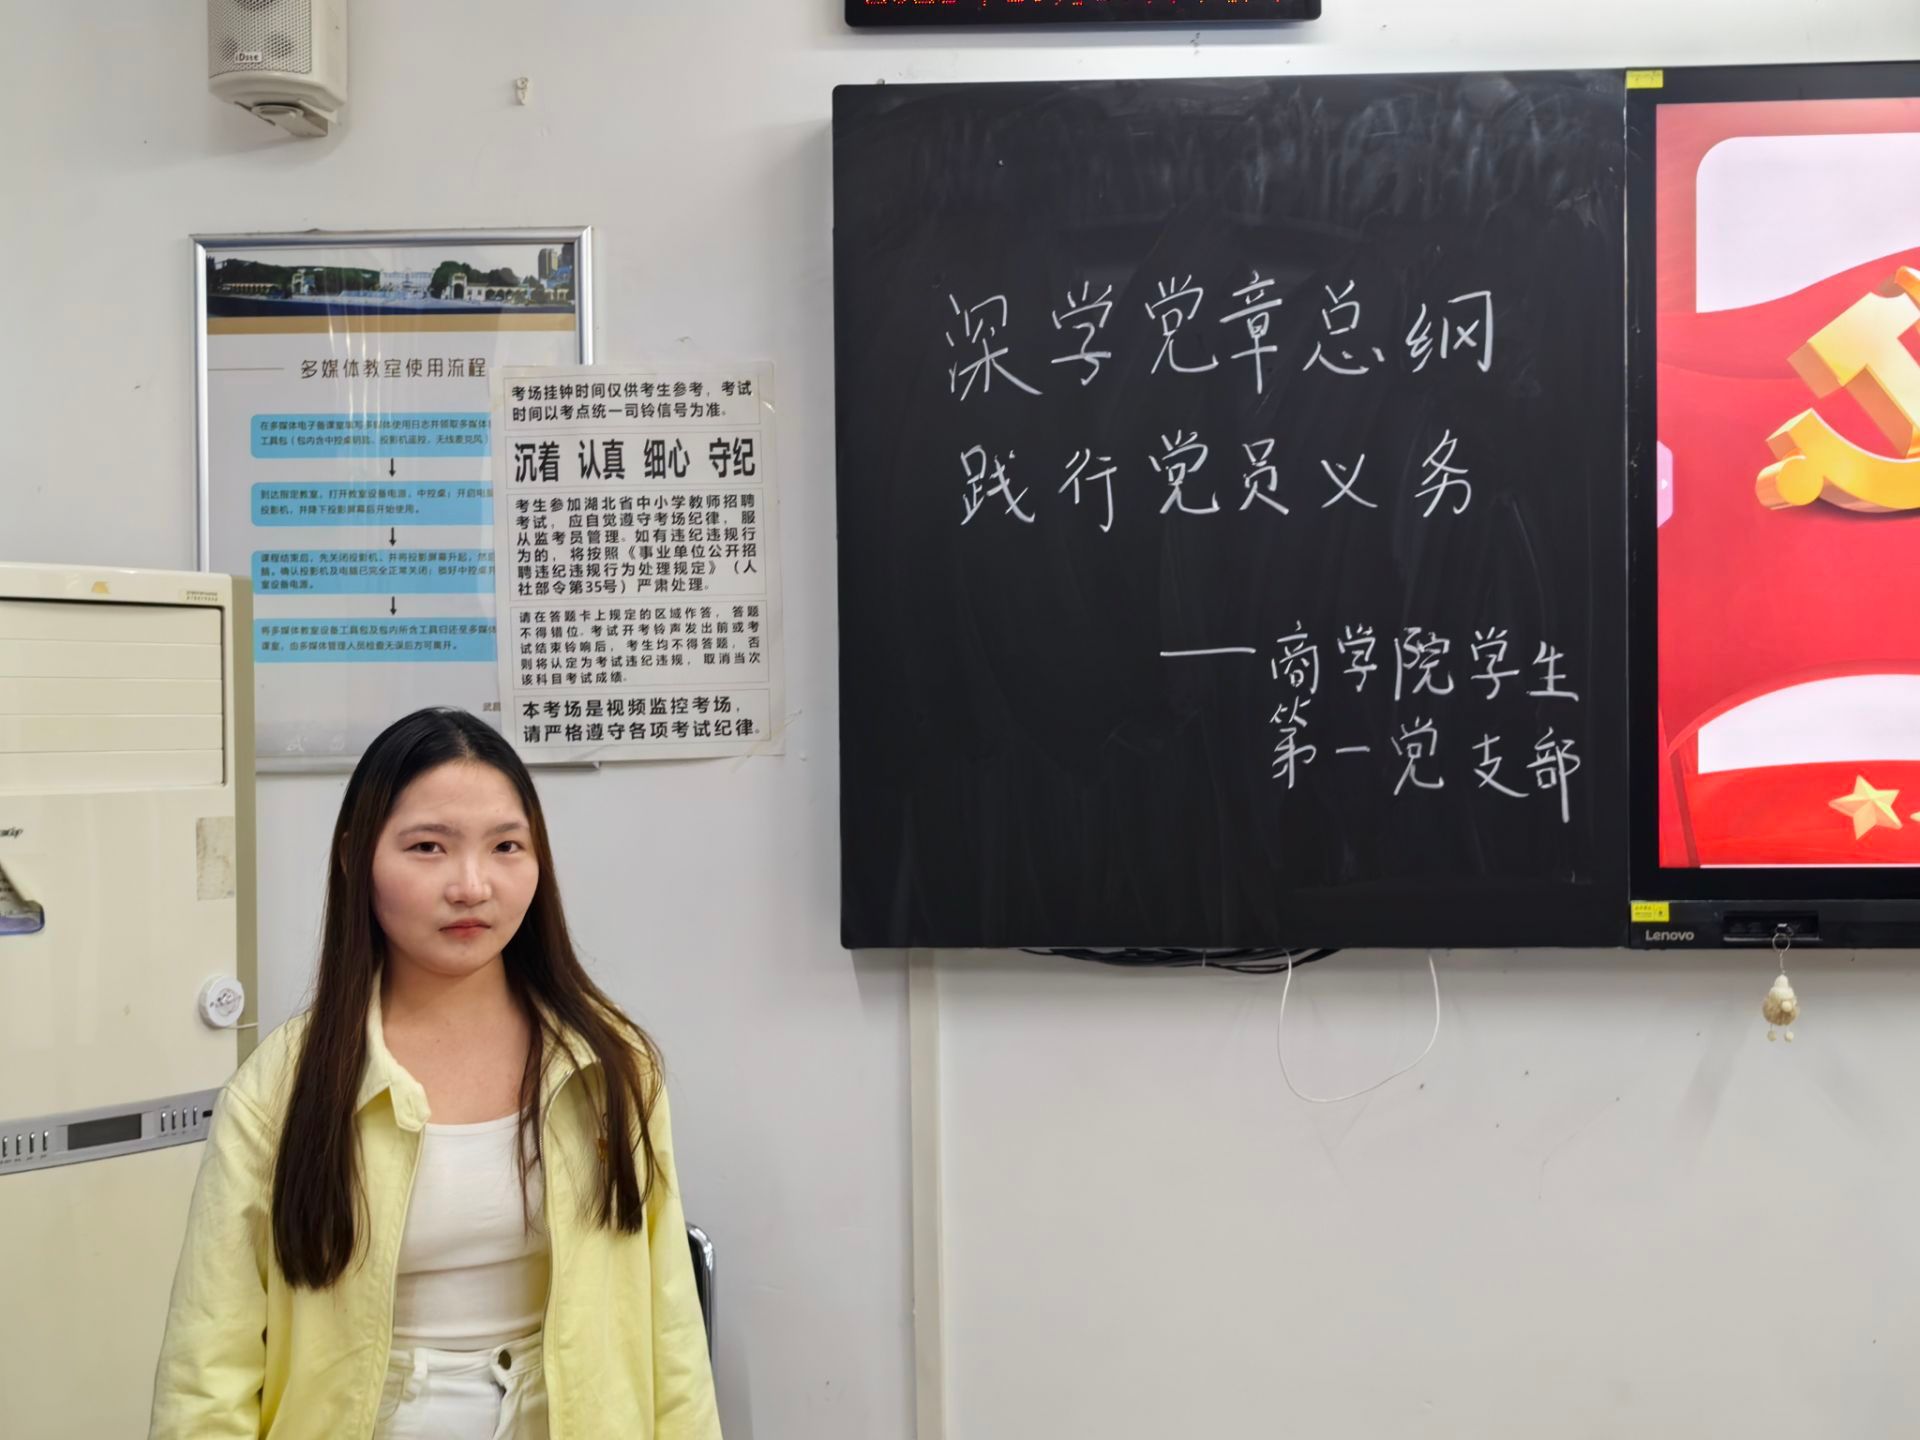 iDste
多媒体教室使用流程
工具包（包内含中控桌钥匙、投影机遥控、无线麦克风）
到达指定教室，打开教室设备电源，中控桌；开启电脑
投影机，并降下投影屏幕后开始使用。
课程结束后，先关闭投影机，并将投影屏幕升起，然后
脑。确认投影机及电脑已完全正常关闭；锁好中控桌
室设备电源。
将多媒体教室设备工具包及包内所含工具归还至多媒体
课室，由多媒体管理人员检查无误后方可离开。
武昌
考场挂钟时间仅供考生参考，考试
时间以考点统一司铃信号为准。
沉着 认真 细心 守纪
考生参加湖北省中小学教师招聘
考试，应自觉遵守考场纪律，服
从监考员管理。如有违纪违规行
为的，将按照《事业单位公开招
聘违纪违规行为处理规定》（人
社部令第35号）严肃处理。
请在答题卡上规定的区域作答，答题
不得错位。考试开考铃声发出前或考
试结束铃响后，考生均不得答题，否
则将认定为考试违纪违规，取消当次
该科目考试成绩。
本考场是视频监控考场，
请严格遵守各项考试纪律。
深学党章总纲
践行党员义务
——商学院学生
第一党支部
Lenovo